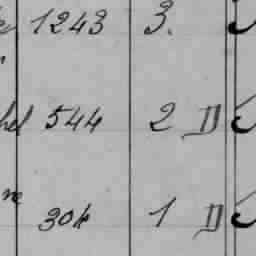 1243 3.
544 2 D
304 1 D